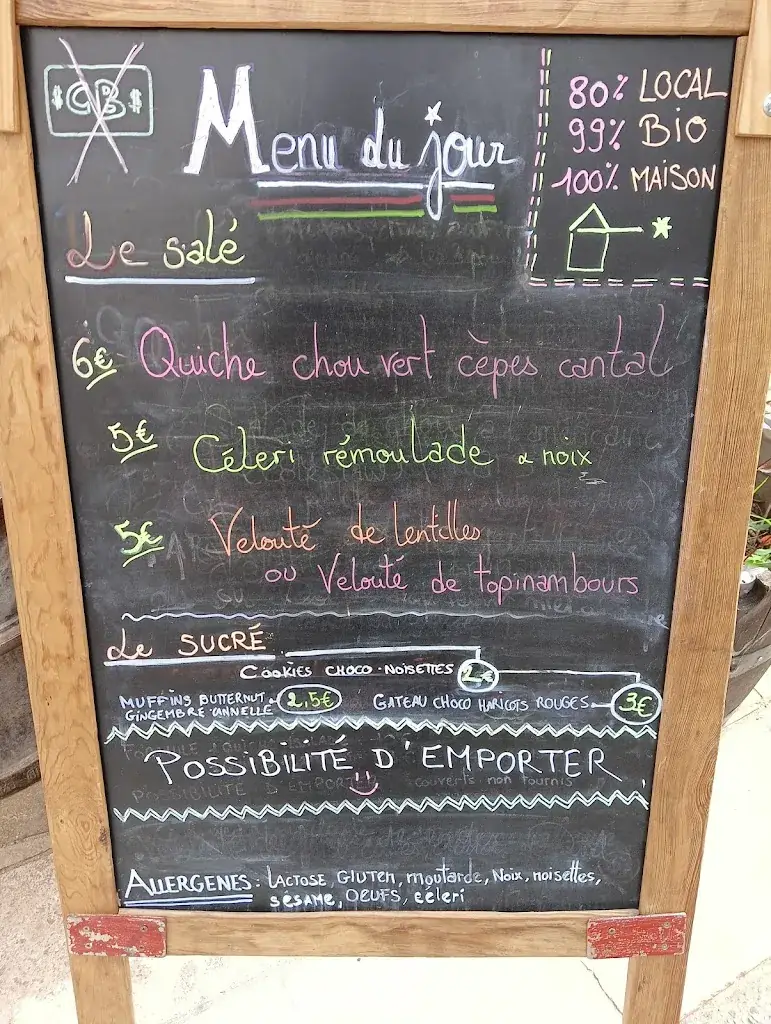 $ CB $
Menu du jour
80% LOCAL
99% BIO
100% MAISON
Le salé
6€ Quiche chou vert cèpes cantal
5€ Céleri rémoulade & noix
5€ Velouté de lentilles
ou Velouté de topinambours
Le SUCRÉ
COOKIES CHOCO-NOISETTES 2€
MUFFINS BUTTERNUT
GINGEMBRE ANNELLE 2,5€
GATEAU CHOCO HARICOTS ROUGES 3€
POSSIBILITÉ D'EMPORTER
couverts non fournis
ALLERGENES: LACTOSE, GLUTEN, moutarde, Noix, noisettes,
SÉSAME, OEUFS, céleri